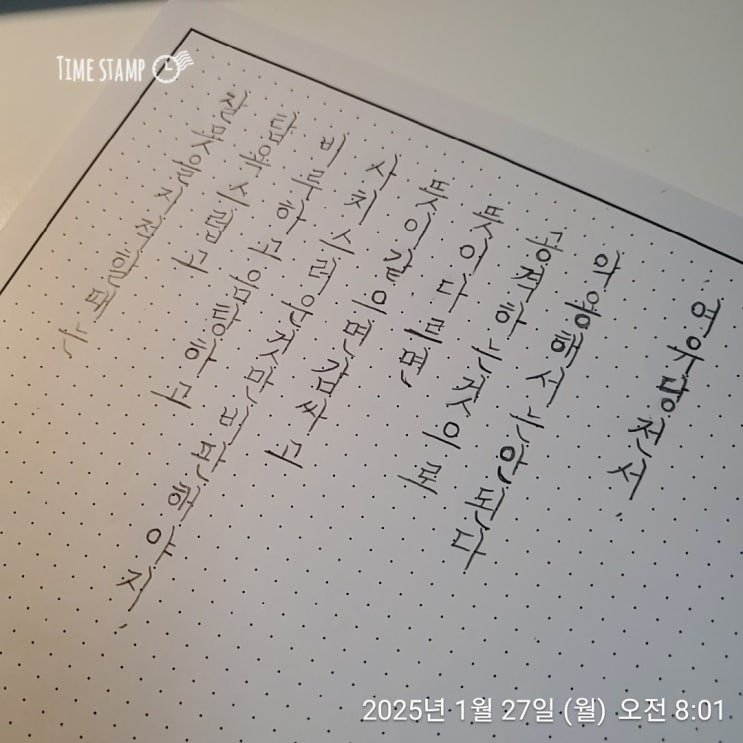 잘못을지적할때는
탐욕스럽고
비루하고음탕하고
사치스러운것만비판해야지.
뜻이같으면감싸고
뜻이다르면
공격하는것으로
악용해서는안된다
여유당전서.
TIME STAMP
2025년 1월 27일 (월) 오전 8:01